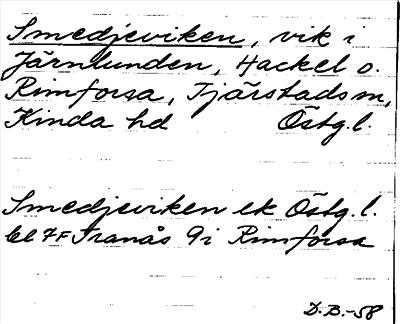 Smedjeviken, vik i
Järnlunden, Hackel o.
Rimforsa, Tjärstads m,
Kinda hd Östg.l.
Smedjeviken ek Östg.l.
bl 7F Tranås 9i Rimforsa
D.B.-58